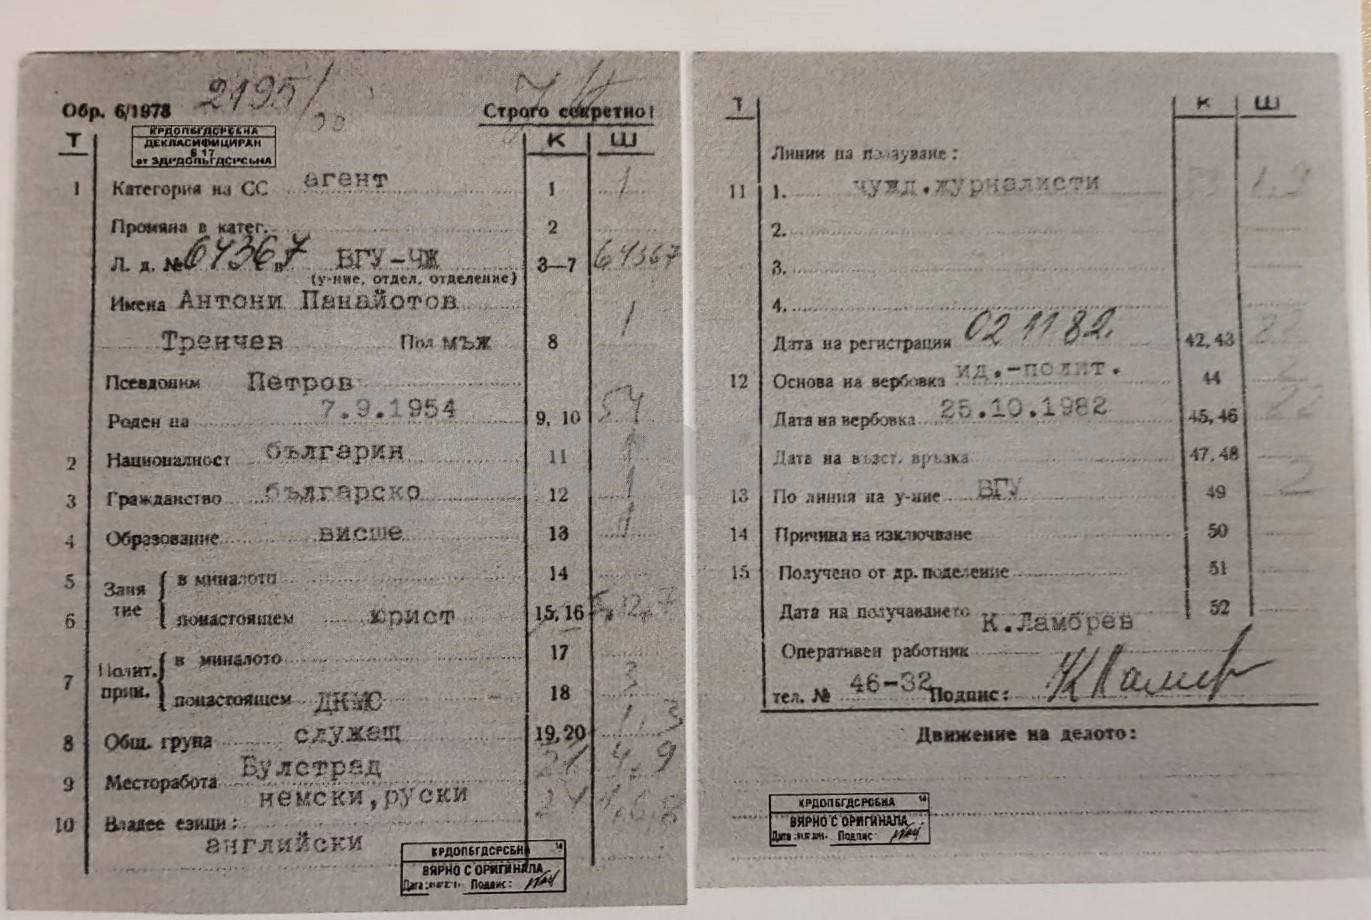 2195/
Обр. 6/1978 Строго секретно!
КРДОПБГДСРСБНА
ДЕКЛАСИФИЦИРАН
§ 17
от ЗДРДОПБГДСРСБНА
Т К Ш
1 Категория на СС агент 1 1
Промяна в катег. 2
Л. д. № 64367 в ВГУ-ЧЖ 3—7 64367
(у-ние, отдел, отделение)
Имена Антони Панайотов
Тренчев Пол мъж 8 1
Псевдоним Петров
Роден на 7.9.1954 9, 10 54
2 Националност българин 11 1
3 Гражданство българско 12 1
4 Образование висше 13 1
5 Заня тие { в миналото 14
6 понастоящем юрист 15, 16
7 Полит. прин. { в миналото 17
понастоящем ДКМС 18 3
8 Общ. група служещ 19, 20 1, 3
9 Месторабота Булстрад 21 4, 9
немски,руски
10 Владее езици: 24 1,6,8
английски
КРДОПБГДСРСБНА 14
ВЯРНО С ОРИГИНАЛА
Дата: Подпис:
Т К Ш
Линии на ползуване:
11 1. чужд.журналисти
2.
3.
4.
Дата на регистрация 02 11 82. 42, 43 82
12 Основа на вербовка ид.-полит. 44 2
Дата на вербовка 25.10.1982 45, 46 82
Дата на възст. връзка 47, 48
13 По линия на у-ние ВГУ 49 2
14 Причина на изключване 50
15 Получено от др. поделение 51
Дата на получаването 52
К.Ламбрев
Оперативен работник
тел. № 46-32 Подпис:
Движение на делото:
КРДОПБГДСРСБНА 14
ВЯРНО С ОРИГИНАЛА
Дата: Подпис: